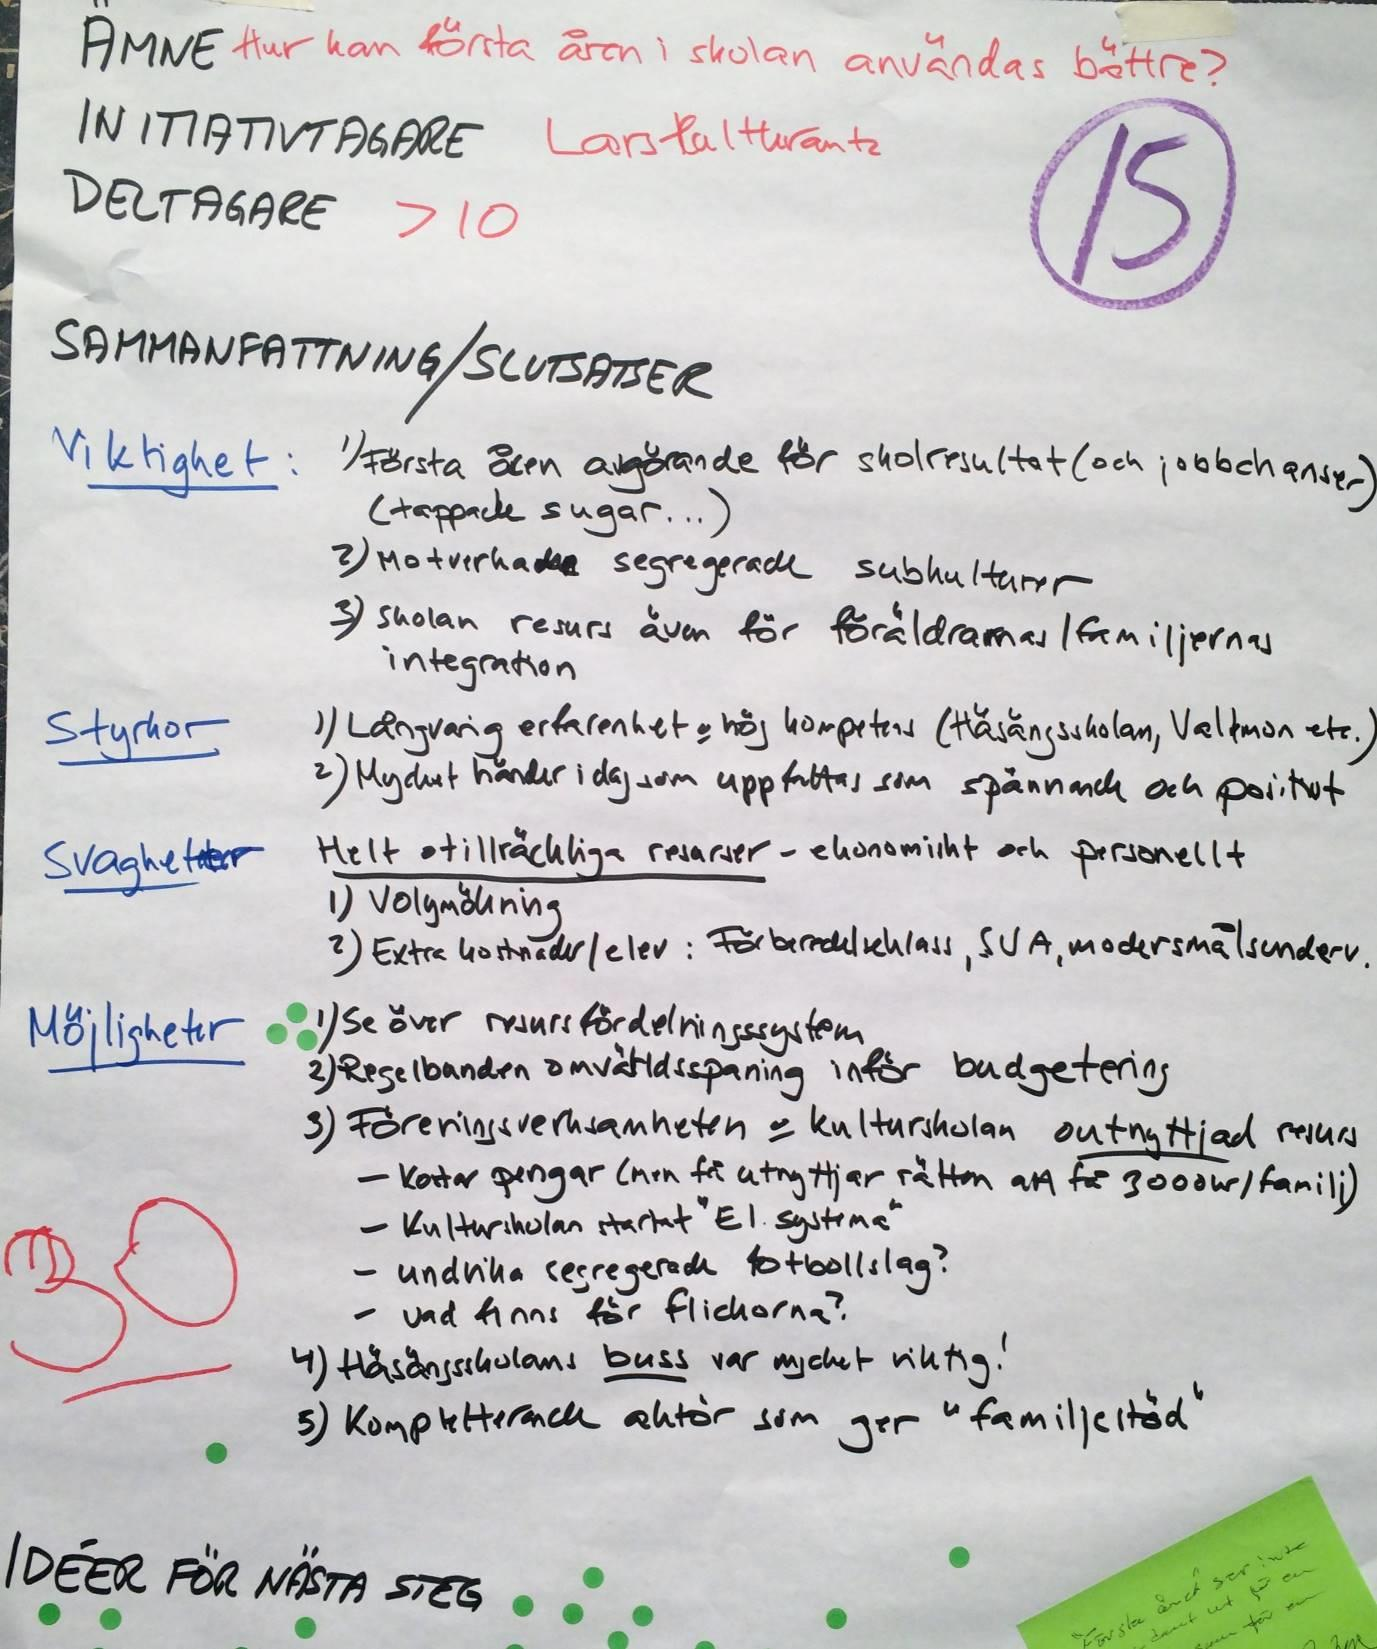 ÄMNE Hur kan första åren i skolan användas bättre?
INITIATIVTAGARE Lars
DELTAGARE >10
15
SAMMANFATTNING/SLUTSATSER
Viktighet: 1) Första åren avgörande för skolresultat (och jobbchanser)
(tappade sugar...)
2) Motverka segregerade subkulturer
3) Skolan resurs även för föräldrarnas/familjernas
integration
Styrkor 1) Långvarig erfarenhet = hög kompetens (Håsängsskolan, Vallmon etc.)
2) Mycket händer idag som uppfattas som spännande och positivt
Svagheter Helt otillräckliga resurser - ekonomiskt och personellt
1) Volymökning
2) Extra kostnader/elev: Förberedelseklass, SVA, modersmålsunderv.
Möjligheter 1) Se över resursfördelningssystem
2) Regelbunden omvärldsspaning inför budgetering
3) Föreningsverksamheten = kulturskolan outnyttjad resurs
- Kostar pengar (men få utnyttjar rätten att få 3000kr/familj)
- Kulturskolan startat "El systema"
- undvika segregerade fotbollslag?
- vad finns för flickorna?
30
4) Håsängsskolans buss var mycket viktig!
5) Kompletterande aktör som ger "familjestöd"
IDÉER FÖR NÄSTA STEG
"Första året" ser inte
ut för en
som för en